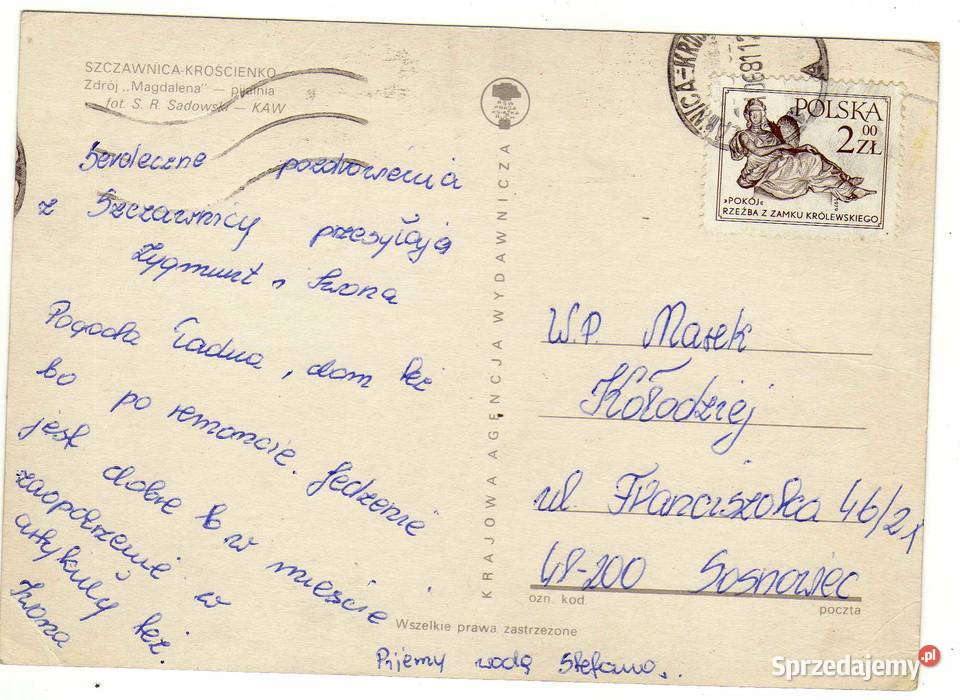 SZCZAWNICA-KROŚCIENKO
Zdrój „Magdalena” — pijalnia
fot. S. R. Sadowski — KAW
Serdeczne pozdrowienia
z Szczawnicy przesyłają
Zygmunt i Iwona
Pogoda ładna, dom też
bo po remoncie. Jedzenie
jest dobre to w mieście
zaopatrzenie w
artykuły też.
Iwona
Pijemy wodę Stefana.
KRAJOWA AGENCJA WYDAWNICZA
POLSKA
2 00 ZŁ
»POKÓJ«
RZEŹBA Z ZAMKU KRÓLEWSKIEGO
W.P. Marek
Kołodziej
ul. Franciszka 46/21
48-200 Sosnowiec
ozn. kod.
poczta
Wszelkie prawa zastrzeżone
Sprzedajemy.pl